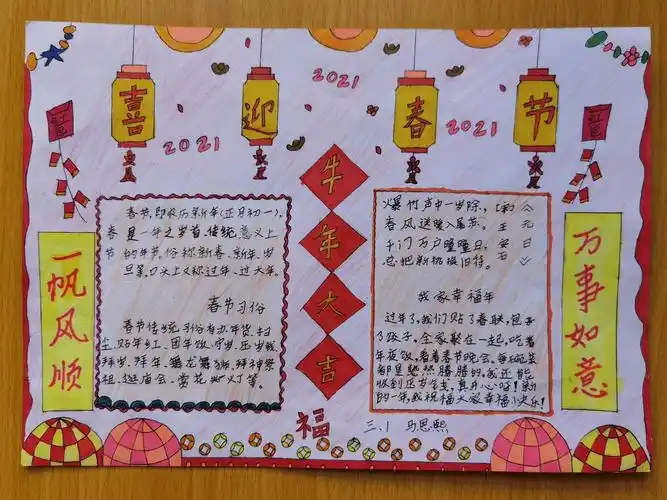 喜迎春节
2021
2021
2021
红包
红包
一帆风顺
牛年大吉
万事如意
春节,即农历新年(正月初一),
春是一年之岁首,传统意义上
节的年节。俗称新春、新年、岁
旦等,口头上又称过年、过大年。
春节习俗
春节传统习俗有办年货、扫
尘、贴年红、团年饭、守岁、压岁钱、
拜岁、拜年、舞龙舞狮、拜神祭
祖、逛庙会、赏花灯等。
爆竹声中一岁除,
春风送暖入屠苏。
千门万户曈曈日,
总把新桃换旧符。
【宋】王安石
《元日》
我家幸福年
过年了,我们贴了春联,包
了饺子。全家聚在一起,吃着
年夜饭,看着春节晚会,每碗菜
都是热腾腾的。我还能
收到压岁钱,真开心呀!新
的一年,我祝福大家幸福快乐!
福
三.1 马思熙